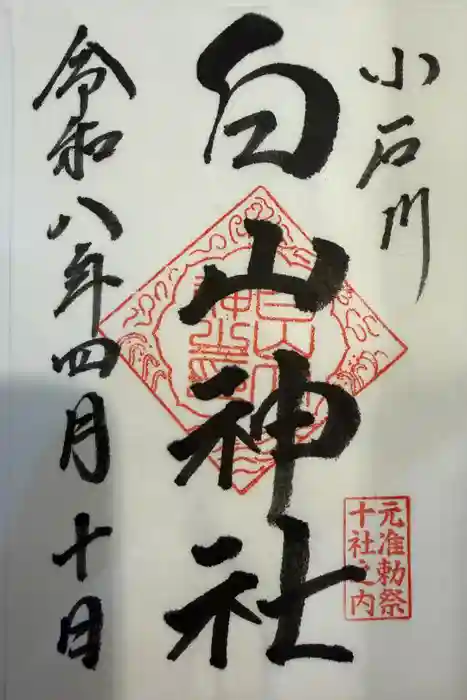 小石川
白山神社
元准勅祭
十社之内
令和八年四月十日